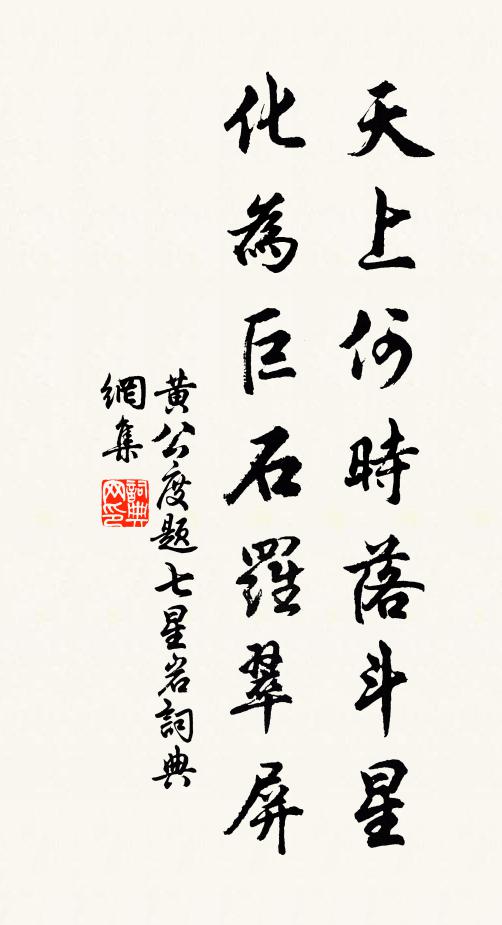 天上何時落斗星
化為巨石羅翠屏
黄公度題七星岩詞典
網集
詞典網印